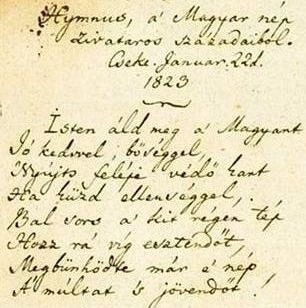 Hymnus, a' Magyar nép
zivataros századaiból.
Cseke. Januar. 22d.
1823
Isten áld meg a' Magyart
Jó kedvvel bőséggel,
Nyújts feléje védő kart
Ha küzd ellenséggel,
Bal sors a' kit régen tép
Hozz rá víg esztendőt,
Megbünhödte már e' nép
A' múltat 's jövendőt!